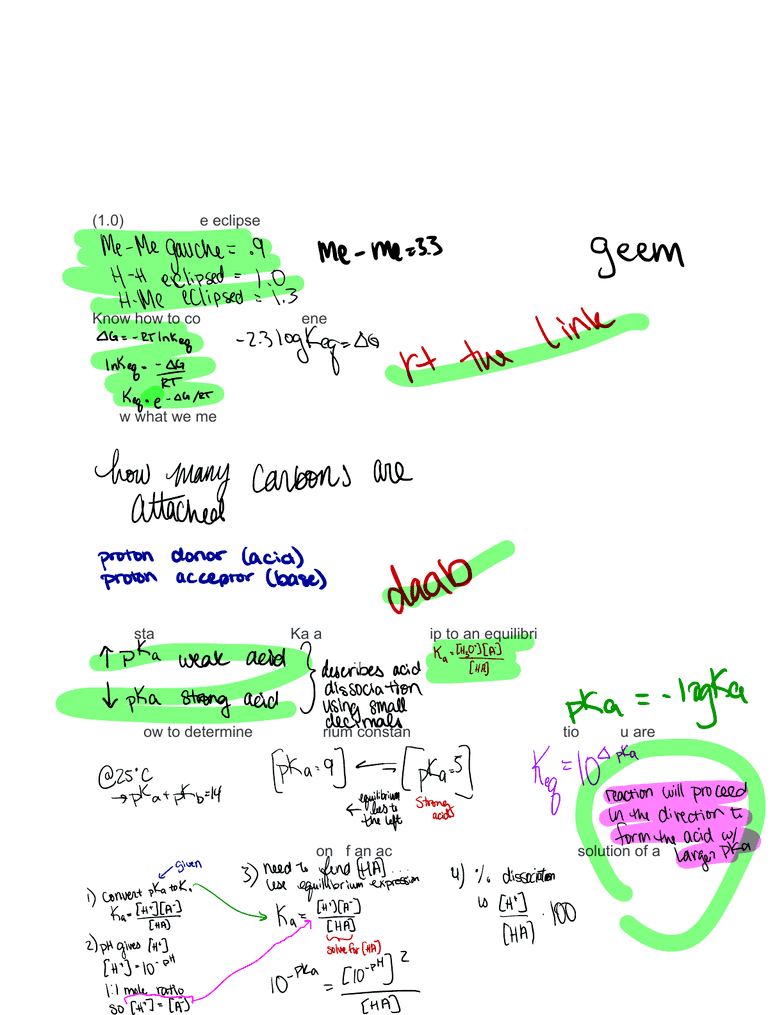 (1.0) e eclipse
Me-Me gauche = .9
H-H eclipsed = 1.0
H-Me eclipsed = 1.3
Me-me=3.3
geem
Know how to co ene
ΔG = -RT lnKeq
lnKeq = -ΔG/RT
Keq = e -ΔG/RT
-2.3 log Keq = ΔG
rt the link
w what we me
how many carbons are
attached
proton donor (acid)
proton acceptor (base)
daab
sta Ka a ip to an equilibri
↑ pKa weak acid
↓ pKa strong acid
describes acid
dissociation
using small
decimals
Ka = [H3O+][A]/[HA]
pKa = -logKa
ow to determine rium constan tio u are
@25°C
→ pKa + pKb = 14
[pKa = 9] ⟵ [pKa = 5]
← equilibrium
lies to
the left
strong
acid
Keq = 10^Δ pKa
reaction will proceed
in the direction to
form the acid w/
larger pKa
on f an ac solution of a
given
1) convert pKa to Ka
Ka = [H+][A-]/[HA]
2) pH gives [H+]
[H+] = 10^-pH
1:1 mole ratio
so [H+] = [A-]
3) need to find [HA] ...
use equilibrium expression
Ka = [H+][A-]/[HA]
solve for [HA]
10^-pKa = [10^-pH]^2/[HA]
4) % dissociation
is [H+]/[HA] · 100